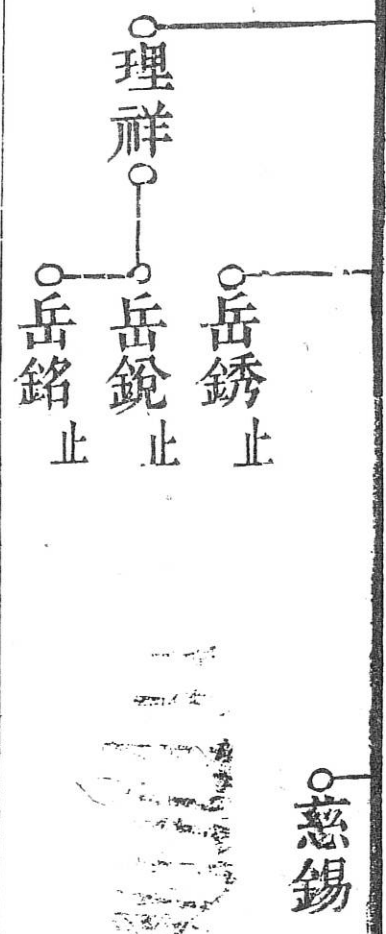 理祥
岳銹止
岳銳止
岳銘止
慈錫